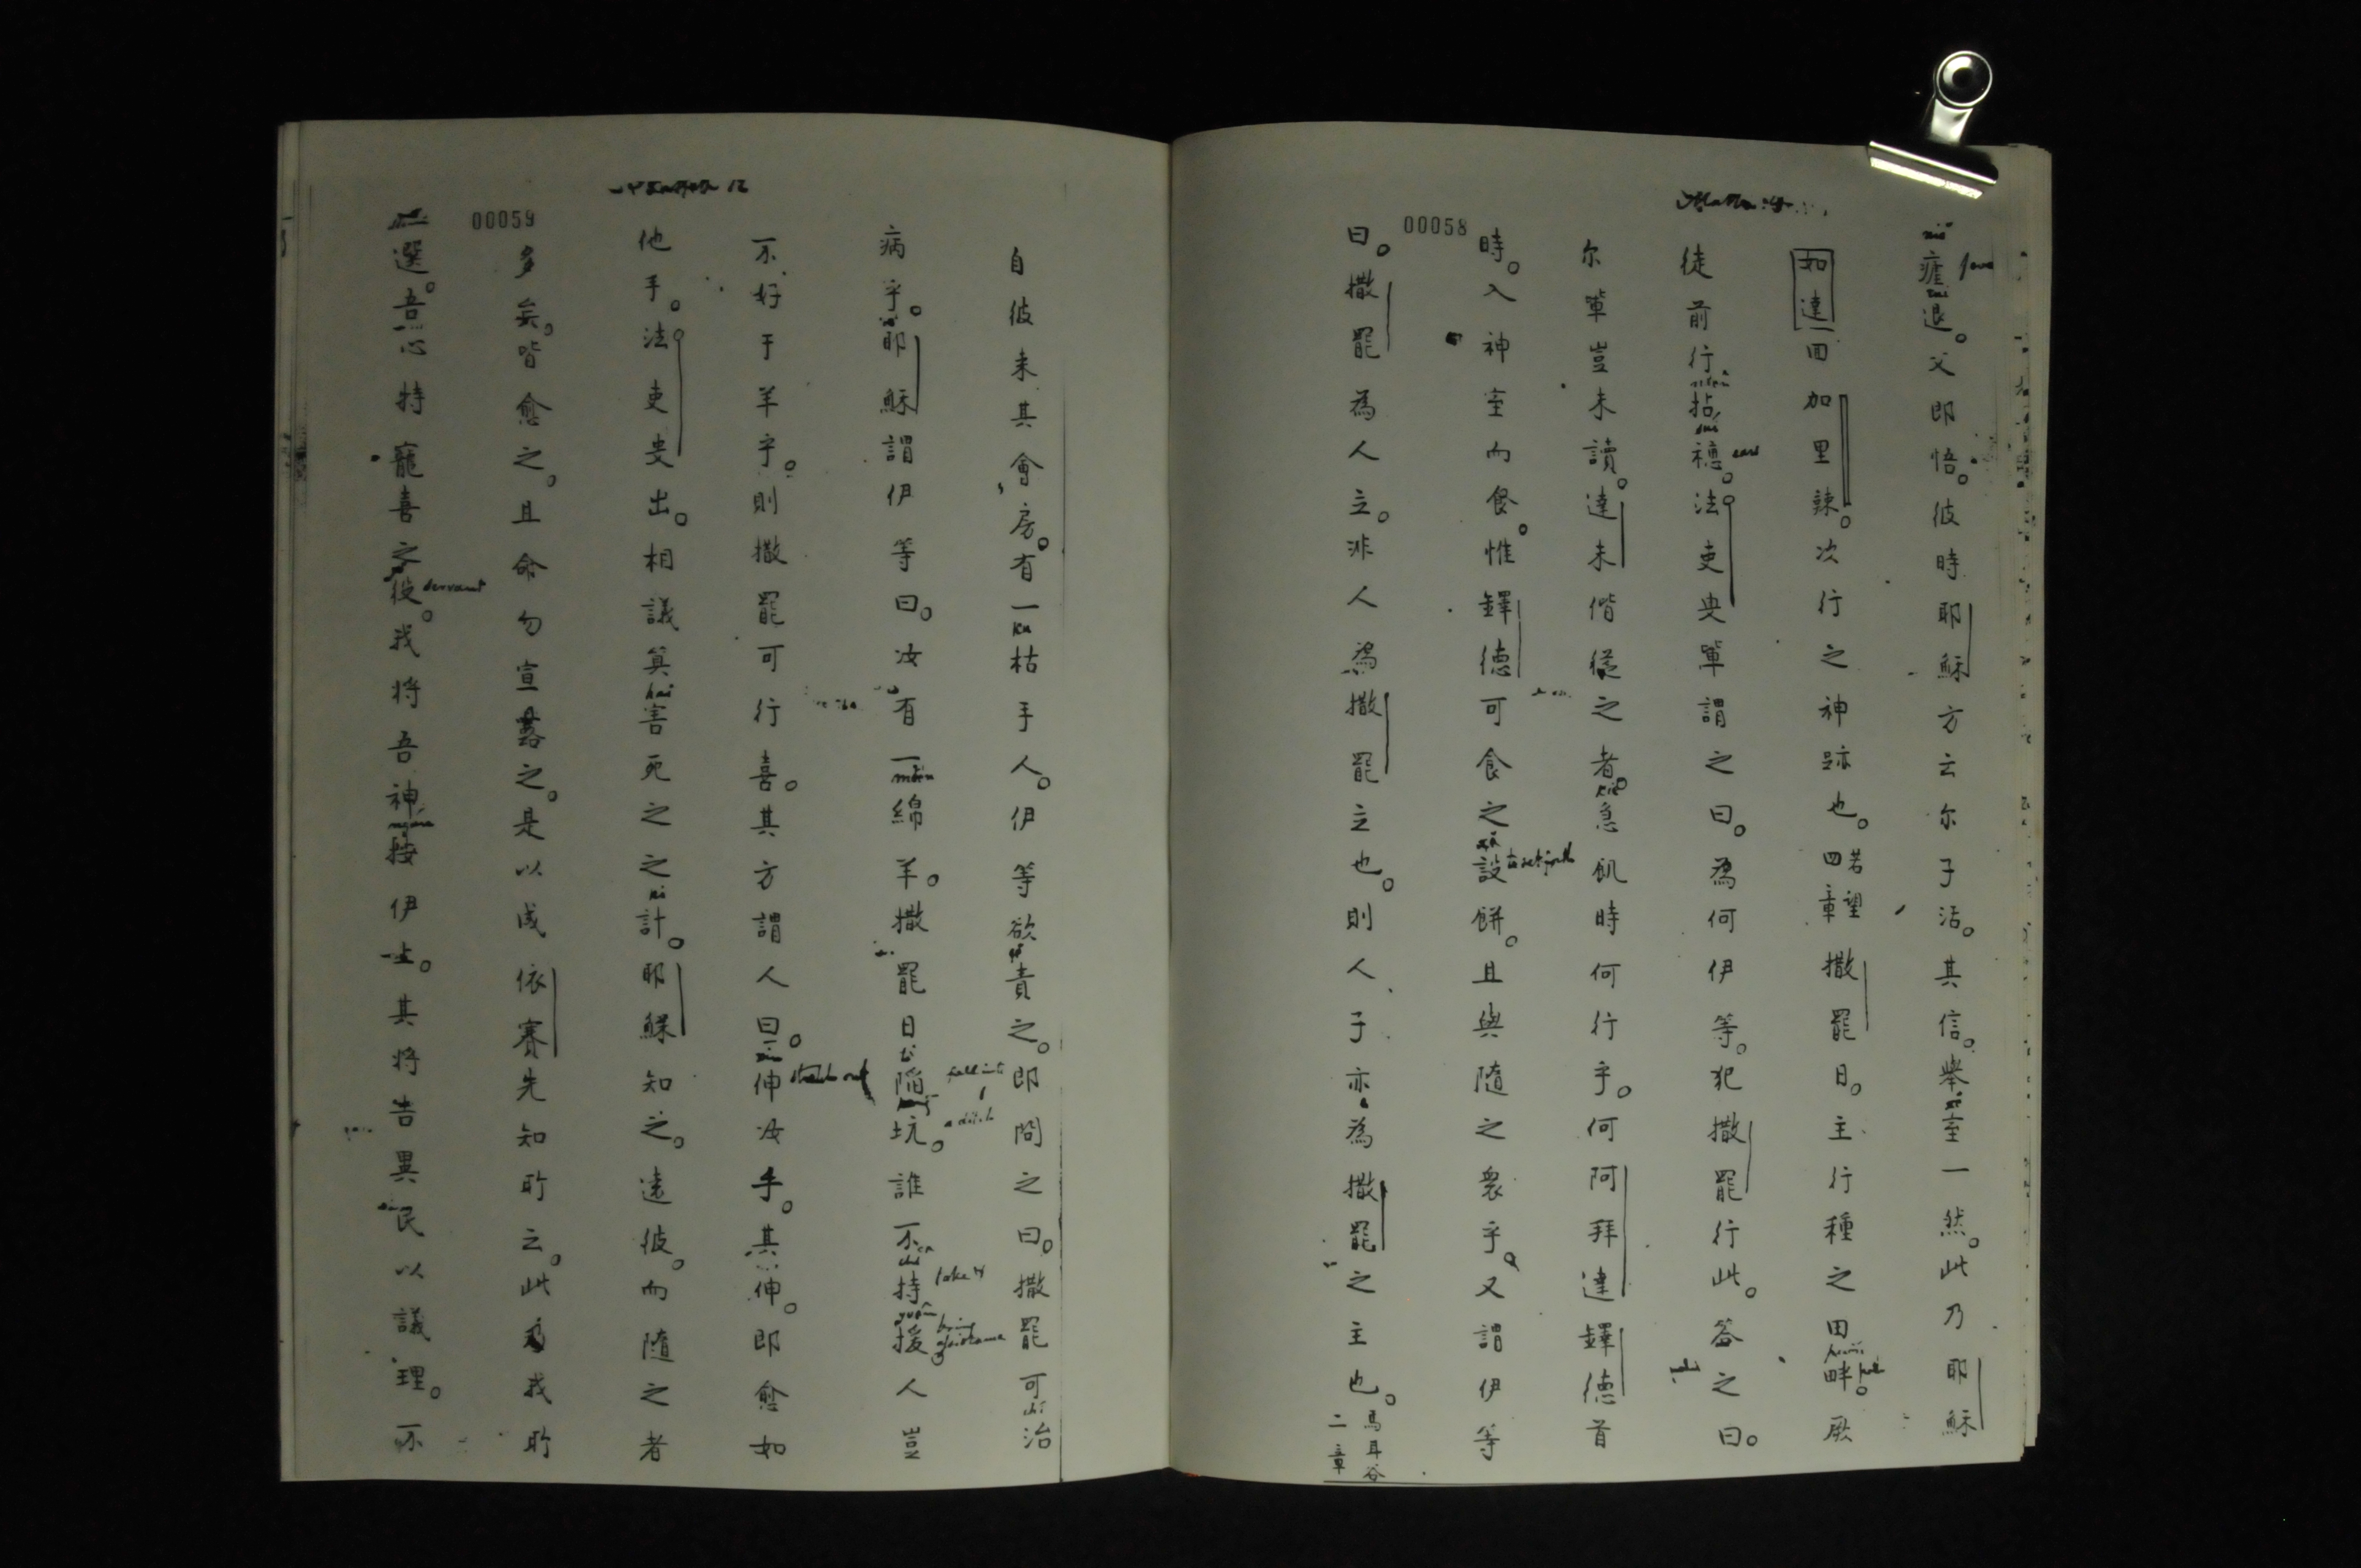 00058
瘧退。父即悟。彼時耶穌方云尔子活。其信。舉室一然。此乃耶穌
如達回加里辣。次行之神跡也。若望四章撒罷日。主行種之田畔。厥
徒前行拈穗。法吏叟輩謂之曰。為何伊等。犯撒罷行此。答之曰。
尔輩豈未讀。達未偕從之者。急飢時何行乎。何阿拜達鐸德首
時。入神室而食。惟鐸德可食之設餅。且與隨之衆乎。又謂伊等
曰。撒罷為人立。非人為撒罷立也。則人子亦為撒罷之主也。馬耳谷二章
Matthew 12
00059
自彼来其會房。有一枯手人。伊等欲責之。即問之曰。撒罷可治
病乎。耶穌謂伊等曰。汝有一綿羊。撒罷日陷坑。誰不持援。人豈
不好于羊乎。則撒罷可行喜。其方謂人曰。伸汝手。其伸。即愈如
他手。法吏叟出。相議算害死之之計。耶穌知之。遠彼。而隨之者
多矣。皆愈之。且命勿宣露之。是以成依賽先知所云。此乃我所
選。吾心特寵喜之役。我将吾神按伊上。其将告異民以議理。不
ear
to set forth
servant
stretch out
fall into
a ditch